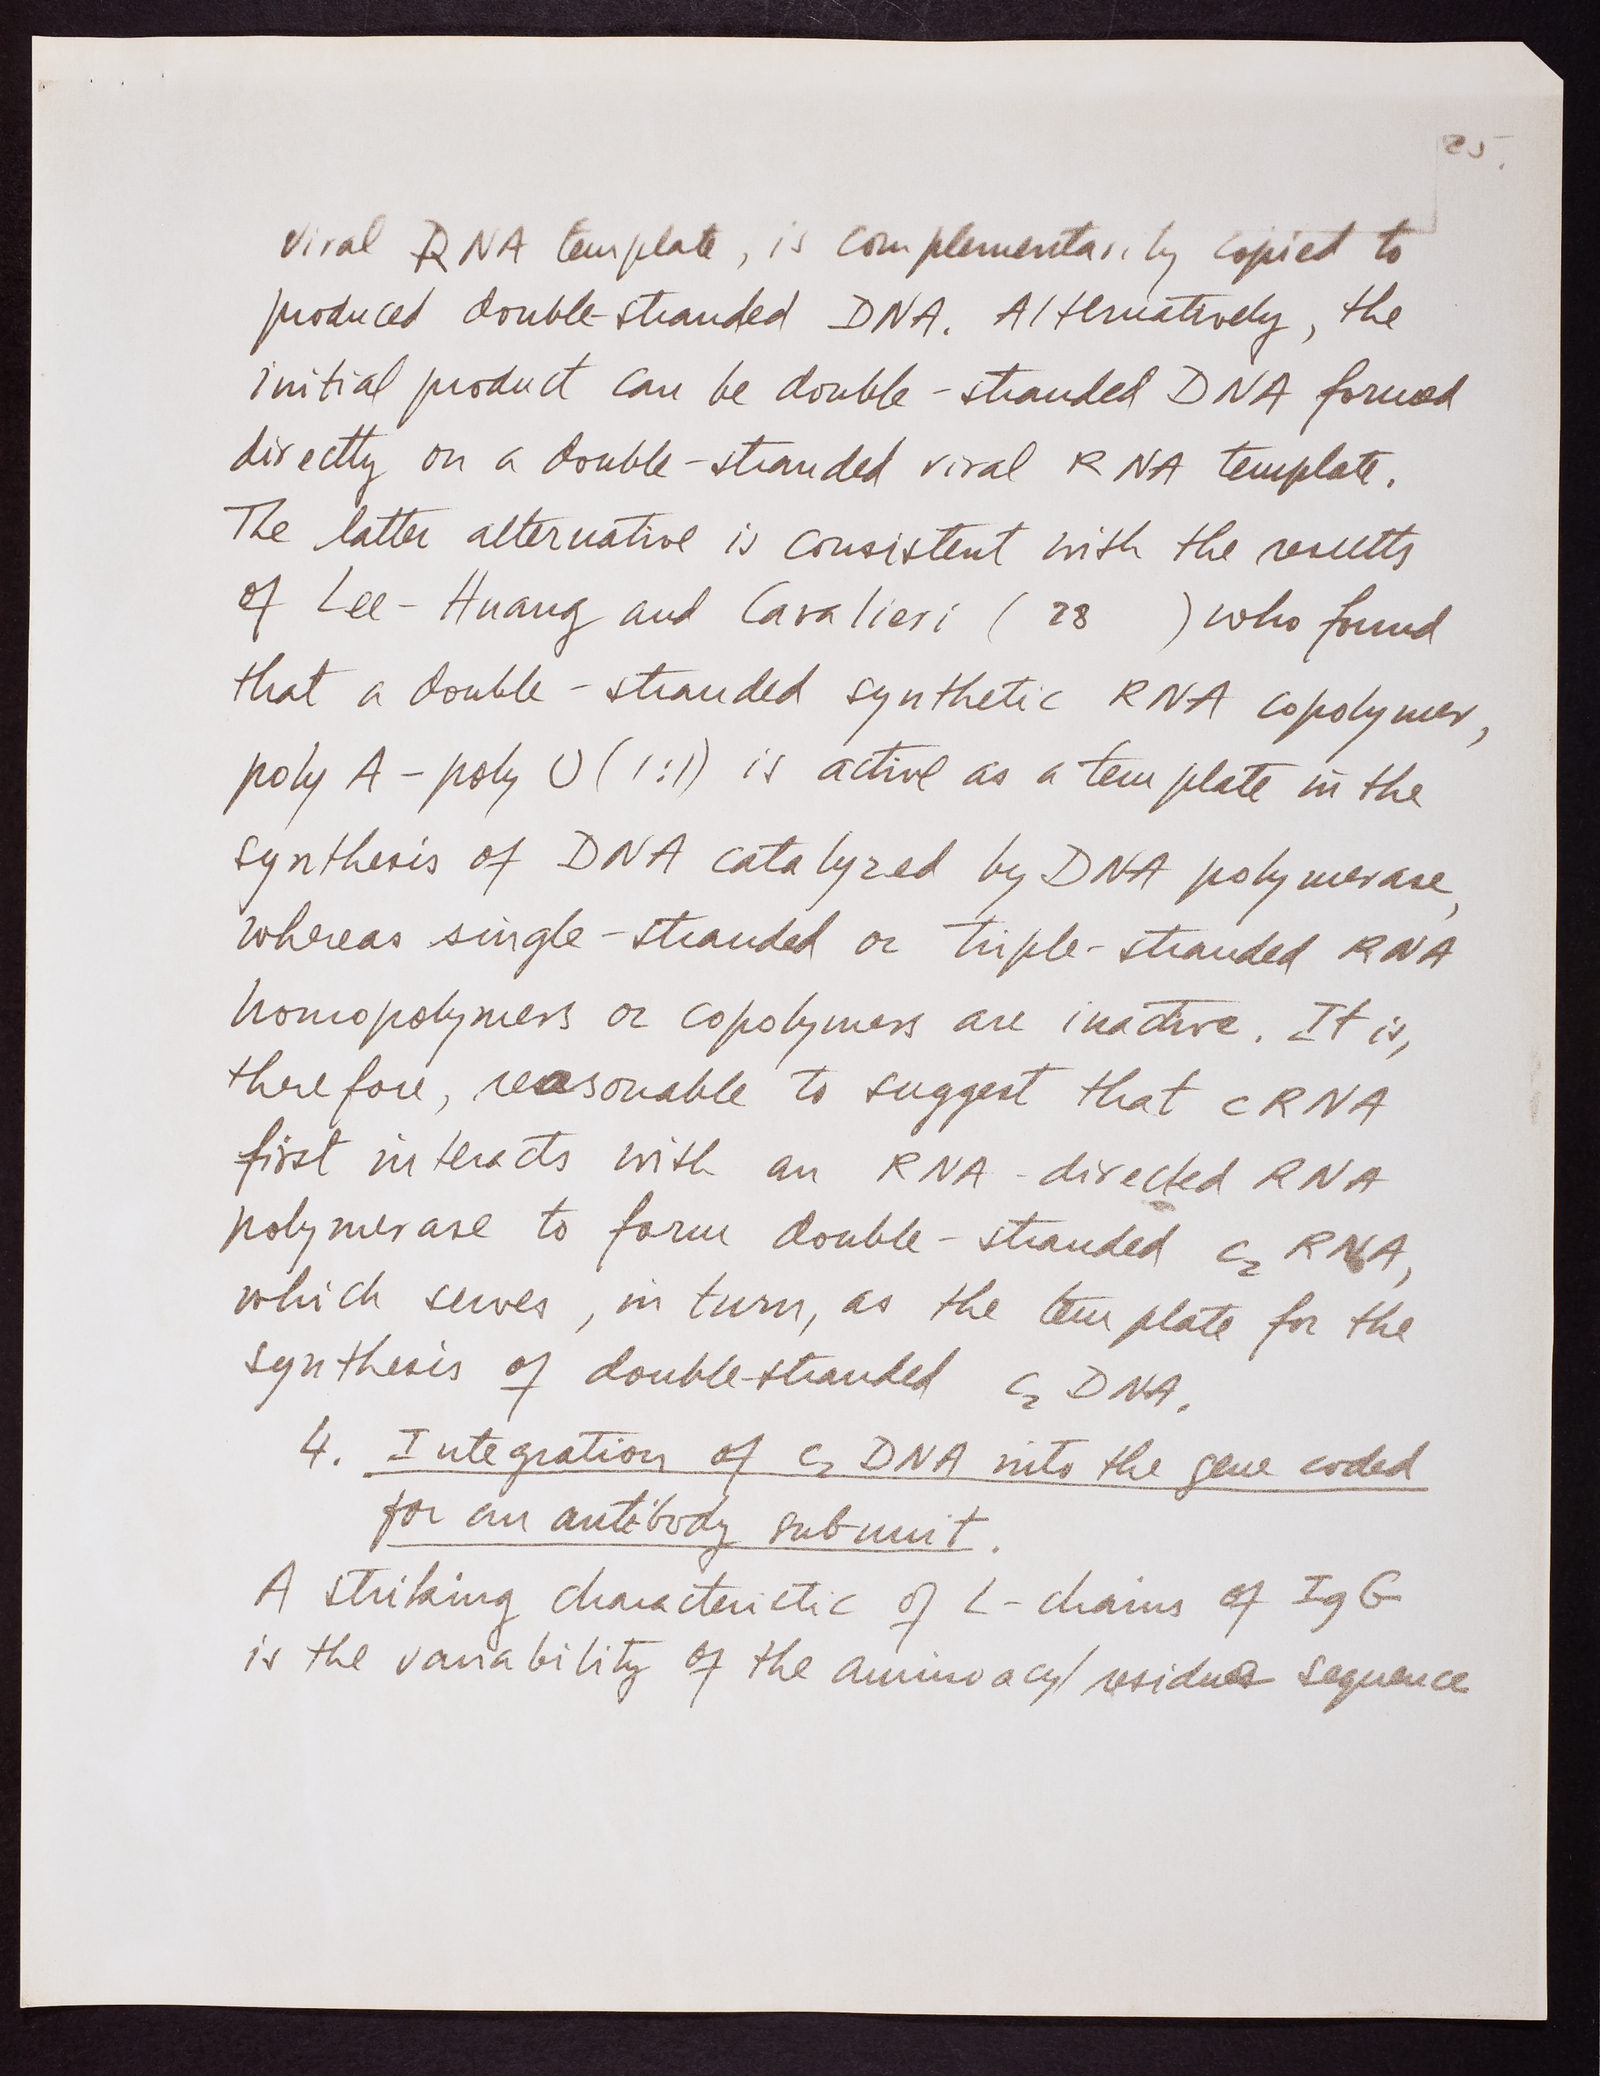 25.
viral RNA template, is complementarily copied to
produced double-stranded DNA. Alternatively, the
initial product can be double-stranded DNA formed
directly on a double-stranded viral RNA template.
The latter alternative is consistent with the results
of Lee-Huang and Cavalieri ( 28 ) who found
that a double-stranded synthetic RNA copolymer,
poly A - poly U (1:1) is active as a template in the
synthesis of DNA catalyzed by DNA polymerase,
whereas single-stranded or triple-stranded RNA
homopolymers or copolymers are inactive. It is,
therefore, reasonable to suggest that cRNA
first interacts with an RNA-directed RNA
polymerase to form double-stranded c₂ RNA,
which serves, in turn, as the template for the
synthesis of double-stranded c₂ DNA.
4. Integration of c₂ DNA into the gene coded
for an antibody subunit.
A striking characteristic of L-chains of IgG
is the variability of the aminoacyl residue sequence